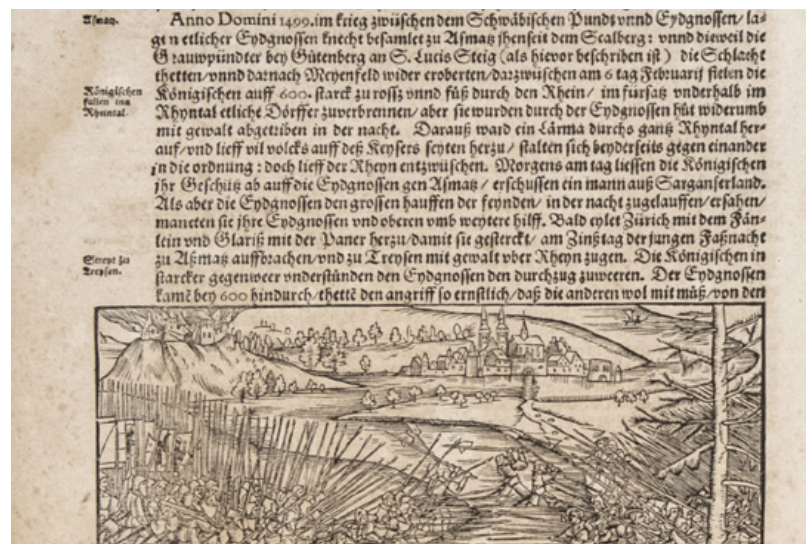 Asmatz.
Anno Domini 1499. im krieg zwüschen dem Schwäbischen Pundt vnnd Eydgnossen/ la-
gen etlicher Eydgnossen knecht besamlet zu Asmatz jhenseit dem Scalberg: vnnd dieweil die
Grauwpündter bey Gütenberg an S. Lucis Steig (als hievor beschriben ist) die Schlacht
thetten/ vnnd darnach Meyenfeld wider eroberten/ darzwüschen am 6 tag Februarij fielen die
Königischen
fallen inn
Rhyntal.
Königischen auff 600. starck zu rossz vnnd füß durch den Rhein/ im fürsatz vnderhalb im
Rhyntal etliche Dörffer zuverbrennen/ aber sie wurden durch der Eydgnossen hüt widerumb
mit gewalt abgetriben in der nacht. Darauß ward ein Lärma durchs gantz Rhyntal her-
auf/ vnd lieff vil volcks auff deß Keysers seyten herzu/ stalten sich beyderseits gegen einander
in die ordnung: doch lieff der Rheyn entzwüschen. Morgens am tag liessen die Königischen
jhr Geschütz ab auff die Eydgnossen gen Asmatz/ erschussen ein mann auß Sarganserland.
Als aber die Eydgnossen den grossen hauffen der feynden/ in der nacht zugelauffen/ ersahen/
maneten sie jhre Eydgnossen vnd oberen vmb weytere hilff. Bald eylet Zürich mit dem Fän-
lein vnd Glariß mit der Paner herzu/ damit sie gesterckt/ am Zinßtag der jungen Faßnacht
Streyt zu
Treysen.
zu Aßmatz auffbrachen/ vnd zu Treysen mit gewalt vber Rheyn zugen. Die Königischen in
starcker gegenweer vnderstünden den Eydgnossen den durchzug zuweeren. Der Eydgnossen
kamẽ bey 600 hindurch/ thettẽ den angriff so ernstlich/ daß die anderen wol mit müß/ von den